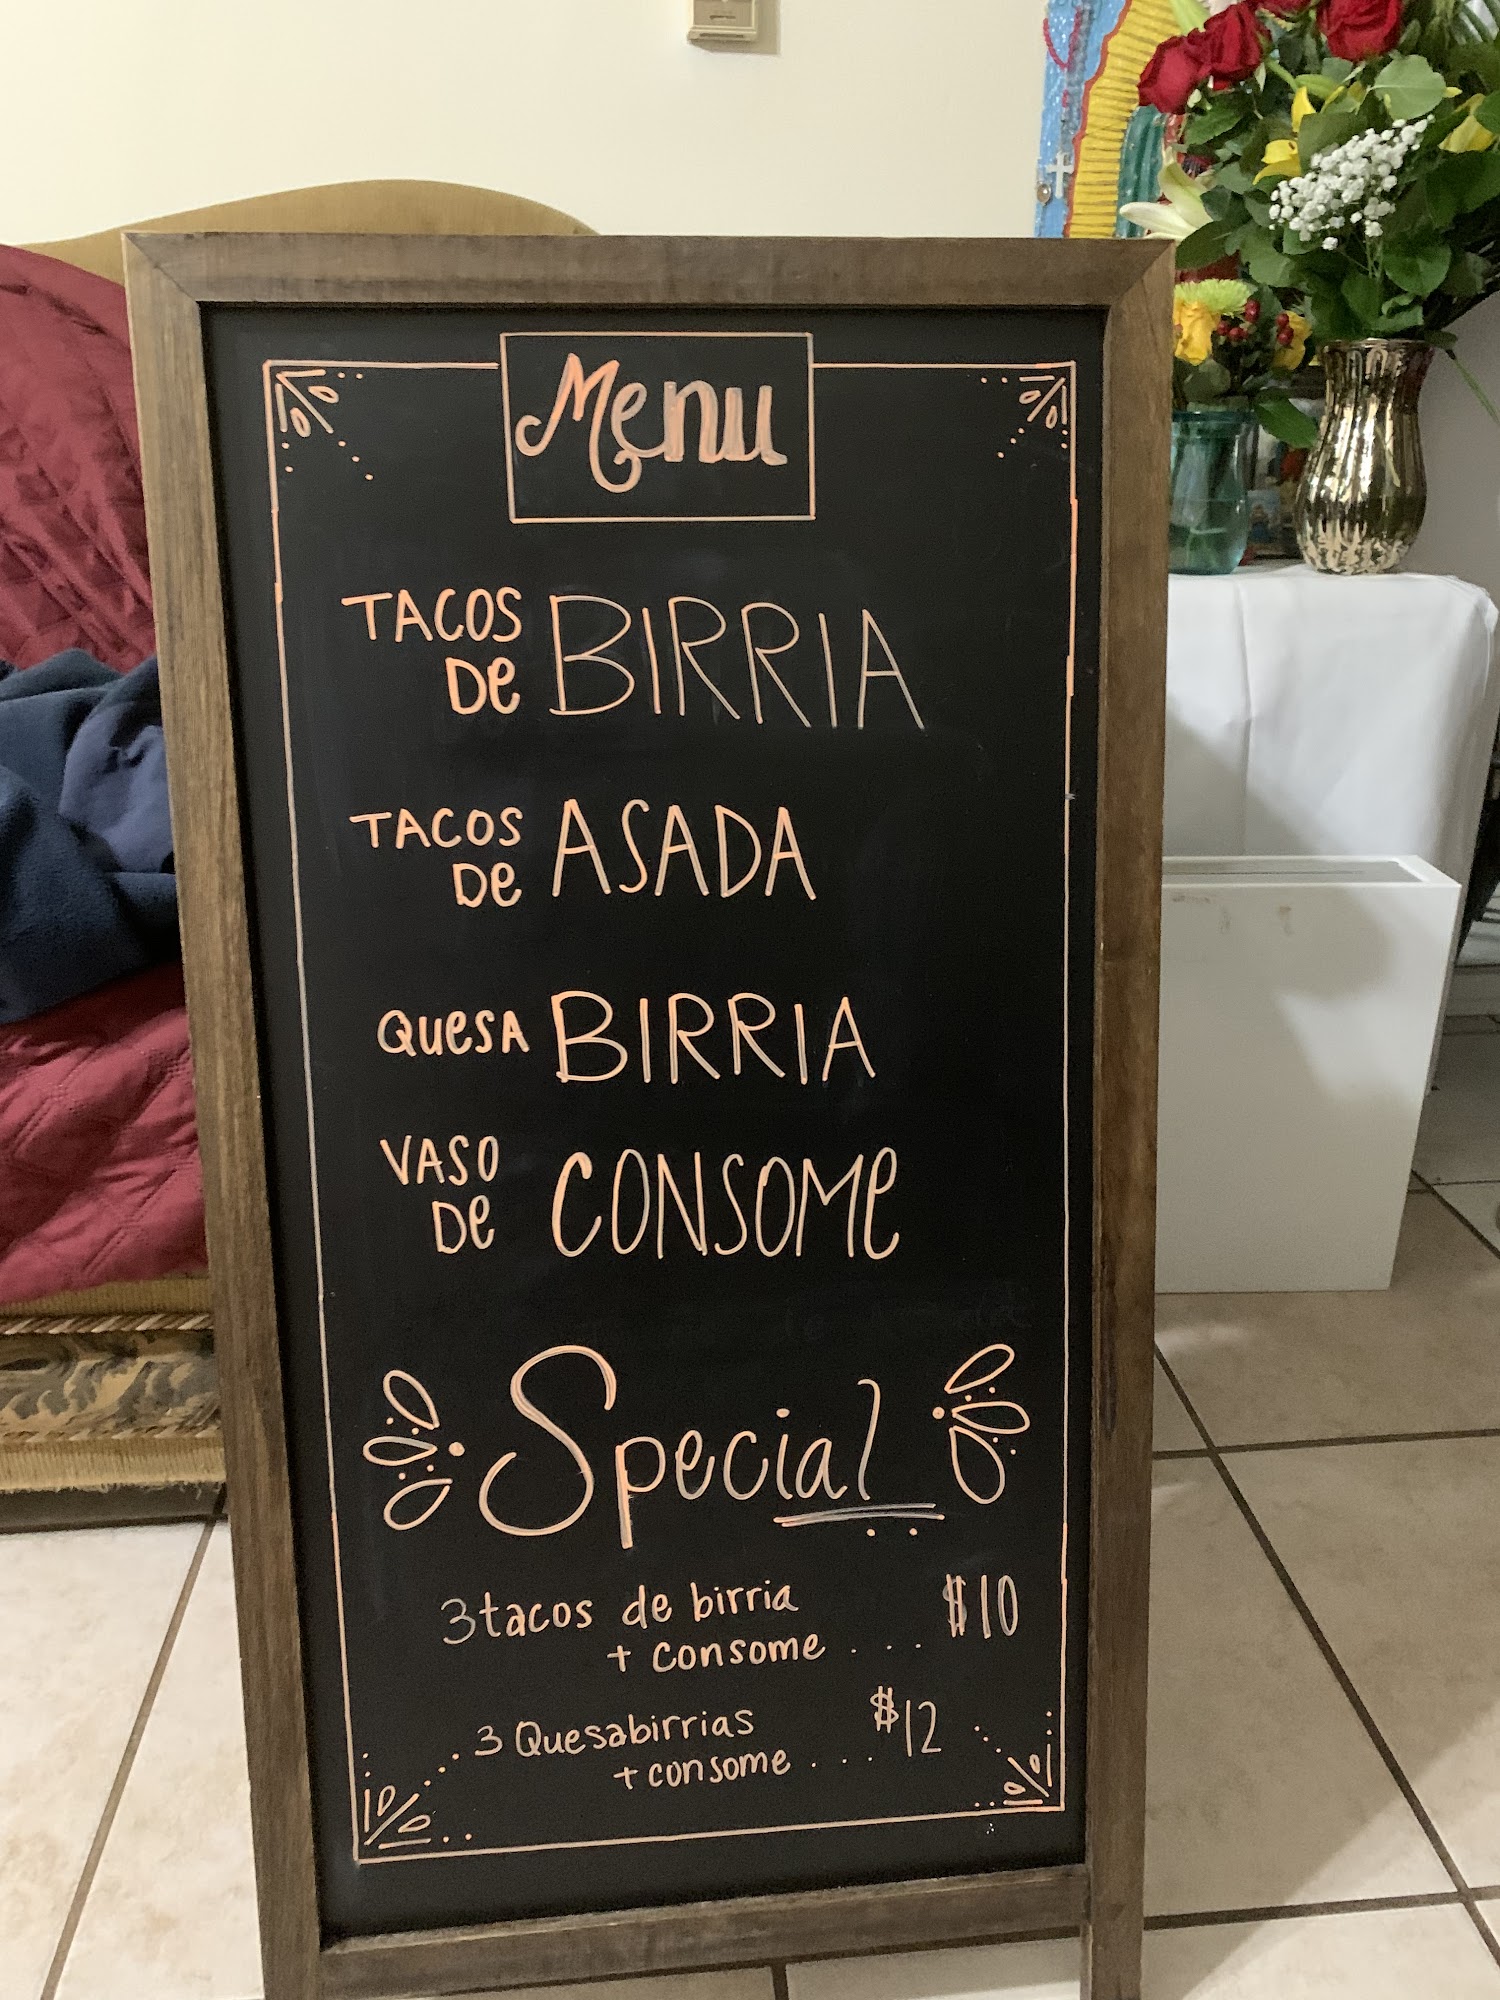 Menu
TACOS
DE BIRRIA
TACOS
DE ASADA
QUESA BIRRIA
VASO
DE CONSOME
Special
3 tacos de birria
+ consome . . . $10
3 Quesabirrias
+ consome . . . . $12